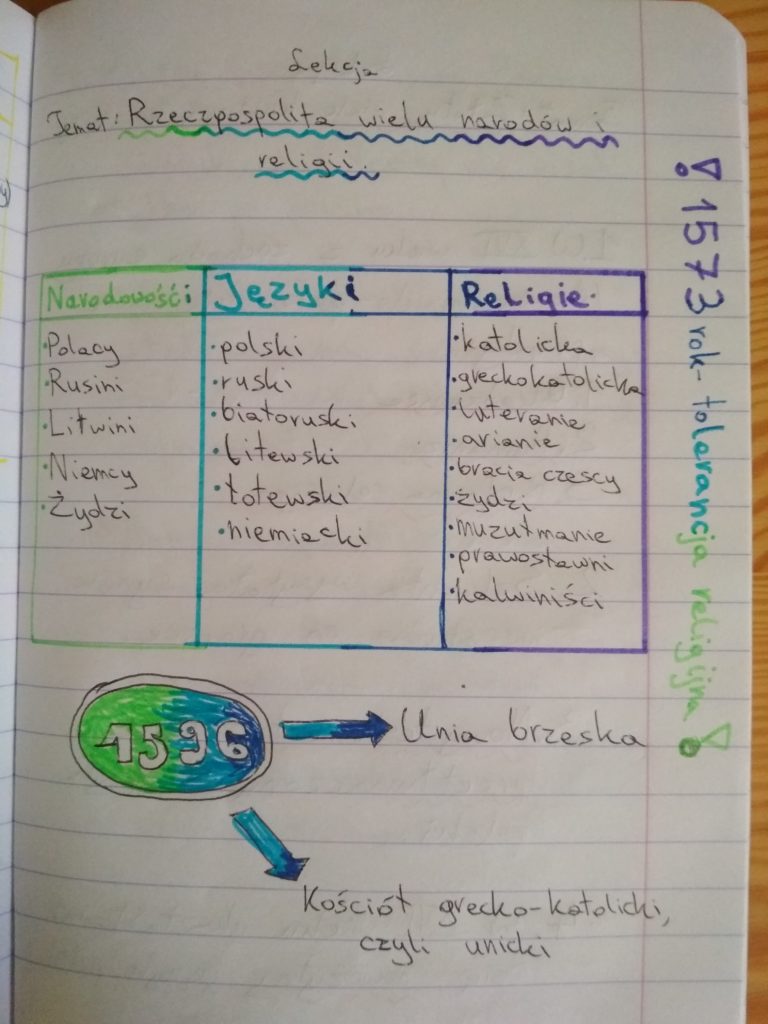 Lekcja
Temat: Rzeczpospolita wielu narodów i
religii.
Narodowości
Polacy
Rusini
Litwini
Niemcy
Żydzi
Języki
polski
ruski
białoruski
litewski
łotewski
niemiecki
Religie.
katolicka
greckokatolicka
luteranie
arianie
bracia czescy
żydzi
muzułmanie
prawosławni
kalwiniści
! 1573 rok - tolerancja religijna !
1596
Unia brzeska
Kościół grecko-katolicki,
czyli unicki